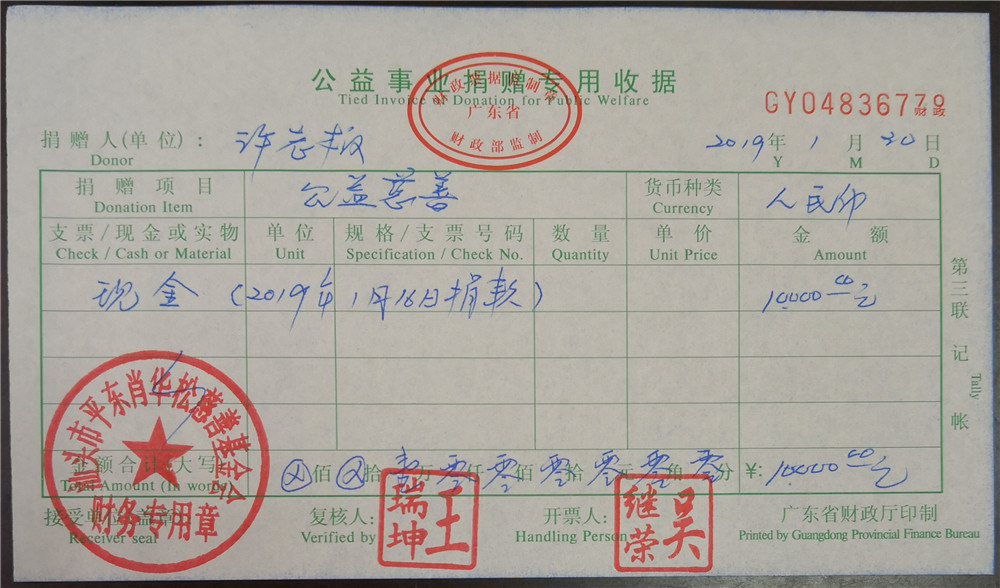 公益事业捐赠专用收据
Tied Invoice of Donation for Public Welfare
财政票据监制章
广东省
财政部监制
GY04836779
财政
捐赠人(单位):
Donor
2019年 1 月 30 日
Y M D
捐赠项目 公益慈善 货币种类 人民币
Donation Item Currency
支票/现金或实物 单位 规格/支票号码 数量 单价 金额
Check / Cash or Material Unit Specification / Check No. Quantity Unit Price Amount
现金 (2019年 1月16日捐款) 10000 00 元
第三联 记帐
Tally
金额合计(大写) ⊗佰 ⊗拾 壹万 零仟 零佰 零拾 零元 零角 零分 ¥: 10000 00 元
Total Amount (In words)
汕头市平东肖华松慈善基金会
财务专用章
接受单位(盖章): 复核人: 王瑞坤 开票人: 吴继荣 广东省财政厅印制
Receiver seal Verified by Handling Person Printed by Guangdong Provincial Finance Bureau